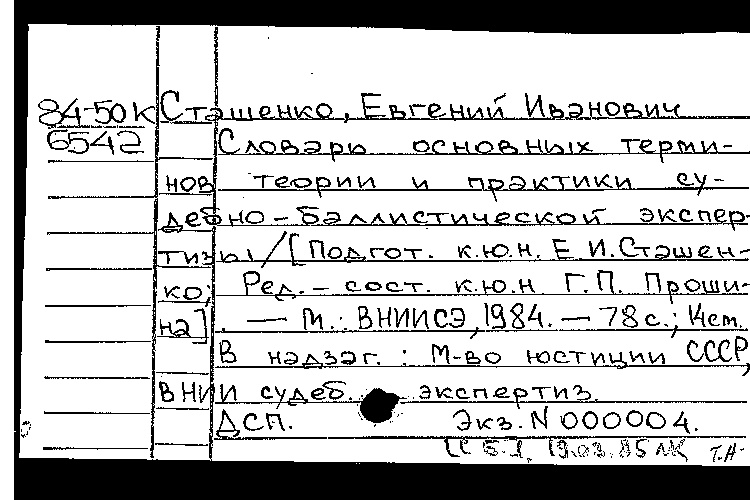 84-50К Сташенко, Евгений Иванович
6542 Словарь основных терми-
нов теории и практики су-
дебно-баллистической экспер-
тизы/[Подгот. к.ю.н. Е И.Сташен-
ко; Ред.-сост. к.ю.н Г.П. Проши-
на]. — М.: ВНИИСЭ, 1984. — 78 с.;
В надзаг. : М-во юстиции СССР,
ВНИИ судеб. экспертиз.
ДСП. Экз. N 000004.